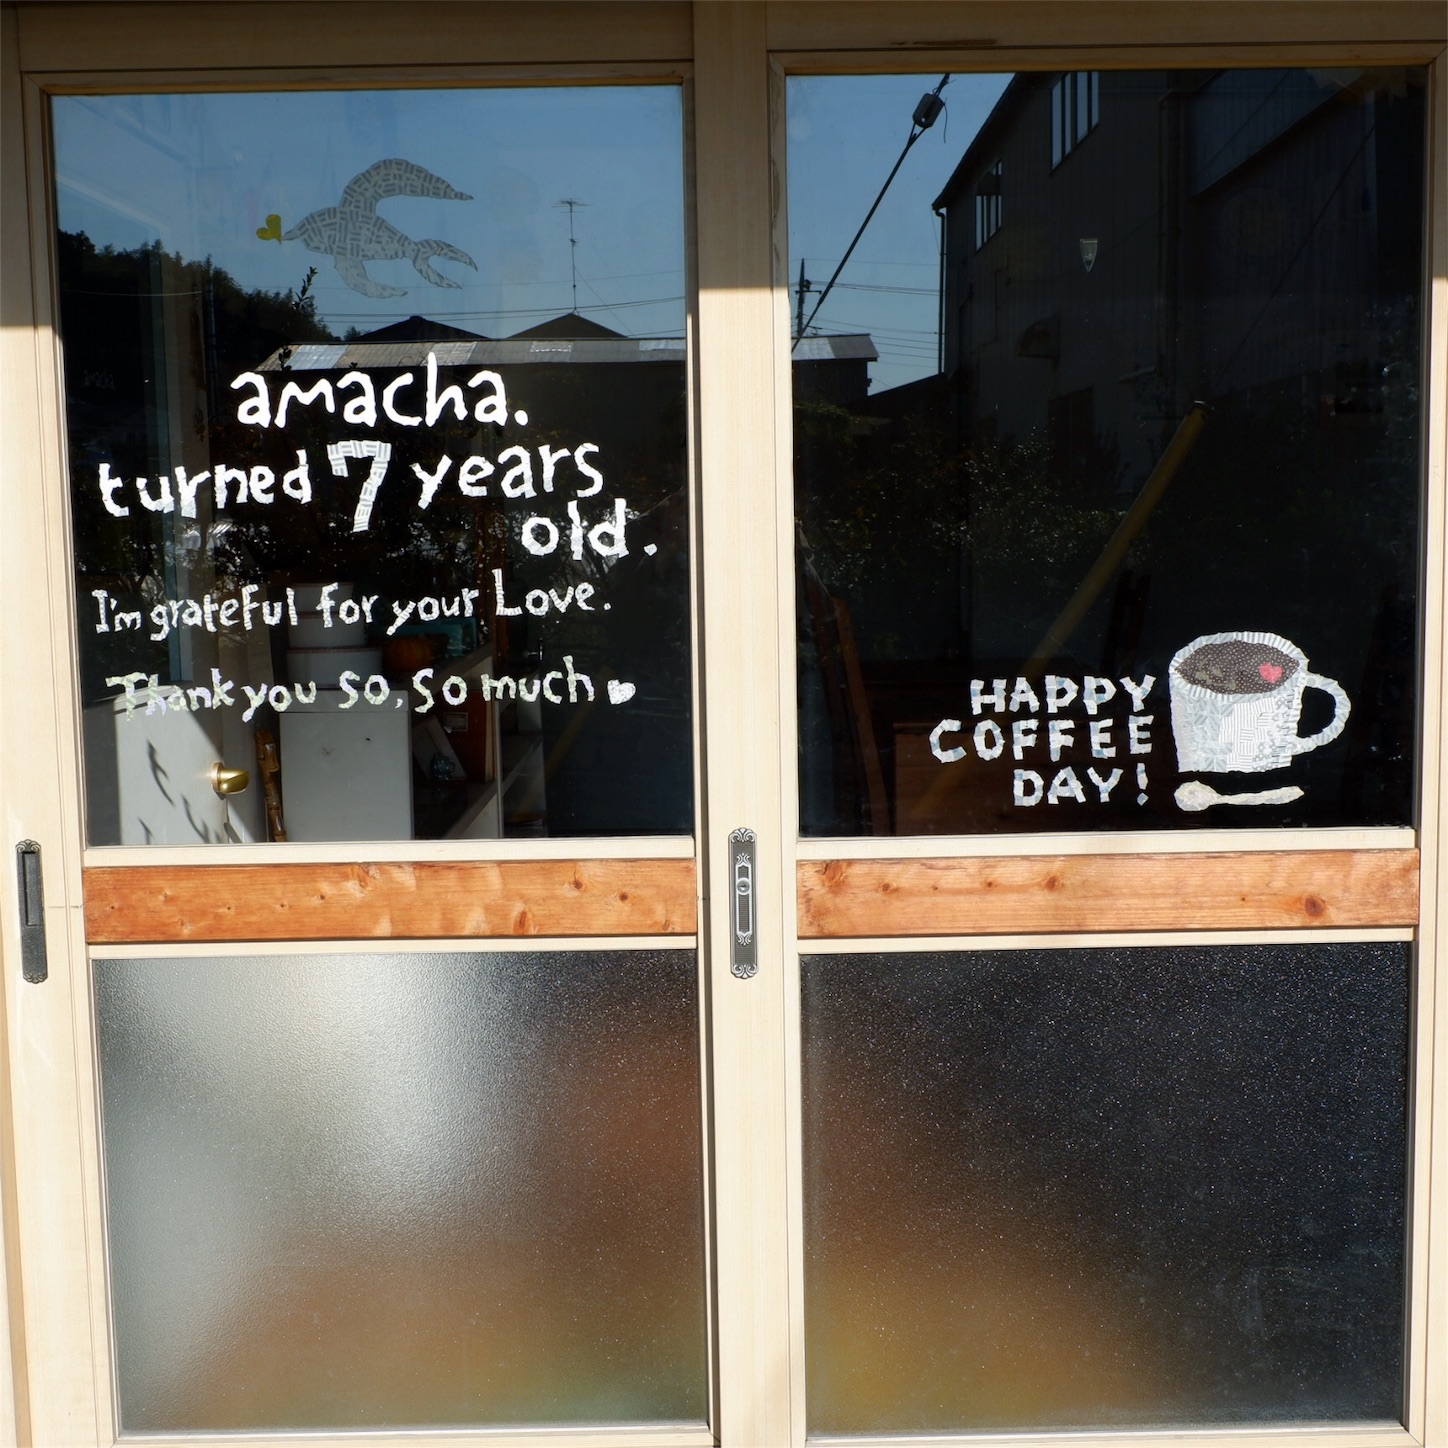 amacha.
turned 7 years
old.
I'm grateful for your Love.
Thank you so, so much
HAPPY
COFFEE
DAY!